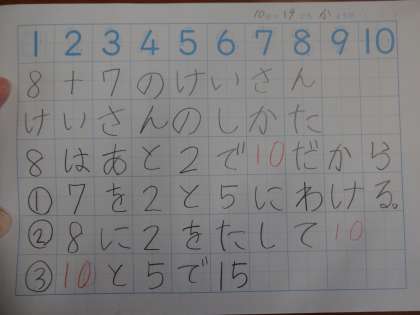 10月19日 か
1 2 3 4 5 6 7 8 9 10
8+7のけいさん
けいさんのしかた
8はあと2で10だから
①7を2と5にわける。
②8に2をたして10
③10と5で15